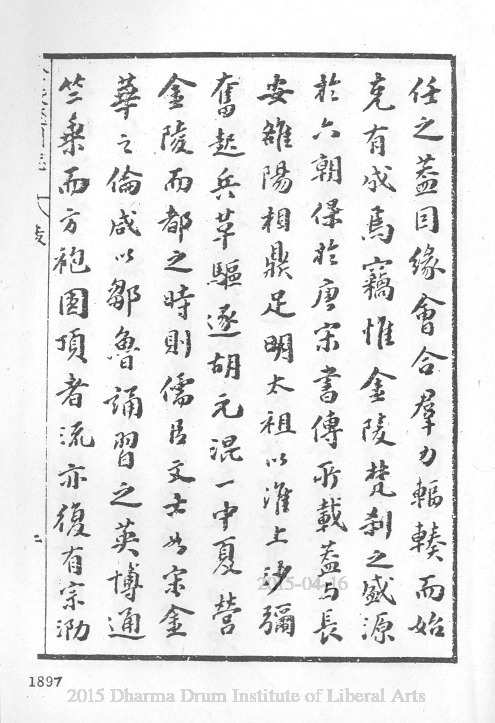 任之蓋因緣會合羣力輻輳而始
克有成焉竊惟金陵梵刹之盛源
於六朝保於唐宋書傳所載蓋与長
安雒陽相鼎足明太祖以淮上沙彌
奮起兵革驅逐胡元混一中夏營
金陵而都之時則儒臣文士如宋金
華之倫咸以鄒魯誦習之英博通
竺乘而方袍圓頂者流亦復有宗泐
1897
2015-04-16
2015 Dharma Drum Institute of Liberal Arts